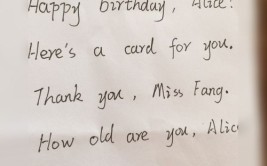 Happy birthday, Alice!
Here's a card for you.
Thank you, Miss Fang.
How old are you, Alice